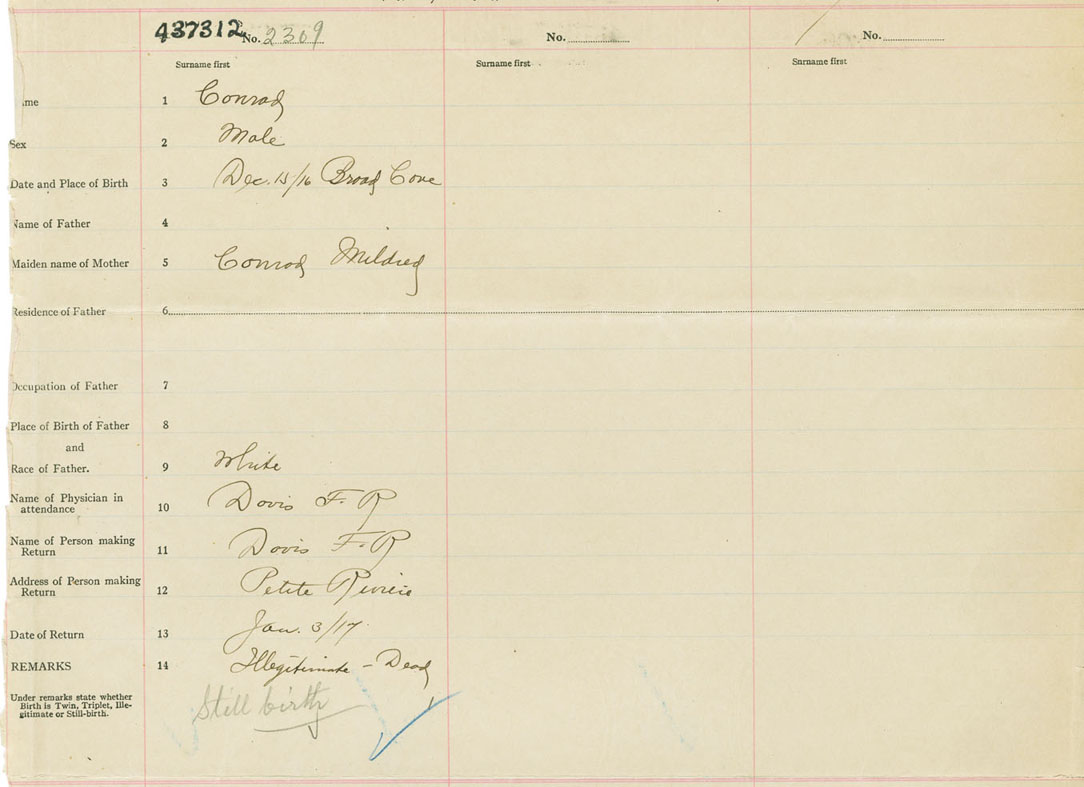 437312 No. 2309 No. No.
Surname first Surname first Surname first
me 1 Conrad
Sex 2 Male
Date and Place of Birth 3 Dec. 15/16 Broad Cove
Name of Father 4
Maiden name of Mother 5 Conrad Mildred
Residence of Father 6
Occupation of Father 7
Place of Birth of Father 8
and
Race of Father. 9 White
Name of Physician in
attendance 10 Davis F. R
Name of Person making
Return 11 Davis F. R
Address of Person making
Return 12 Petite Riviere
Date of Return 13 Jan. 3/17
REMARKS 14 Illegitimate - Dead
Under remarks state whether
Birth is Twin, Triplet, Ille-
gitimate or Still-birth.
Still birth